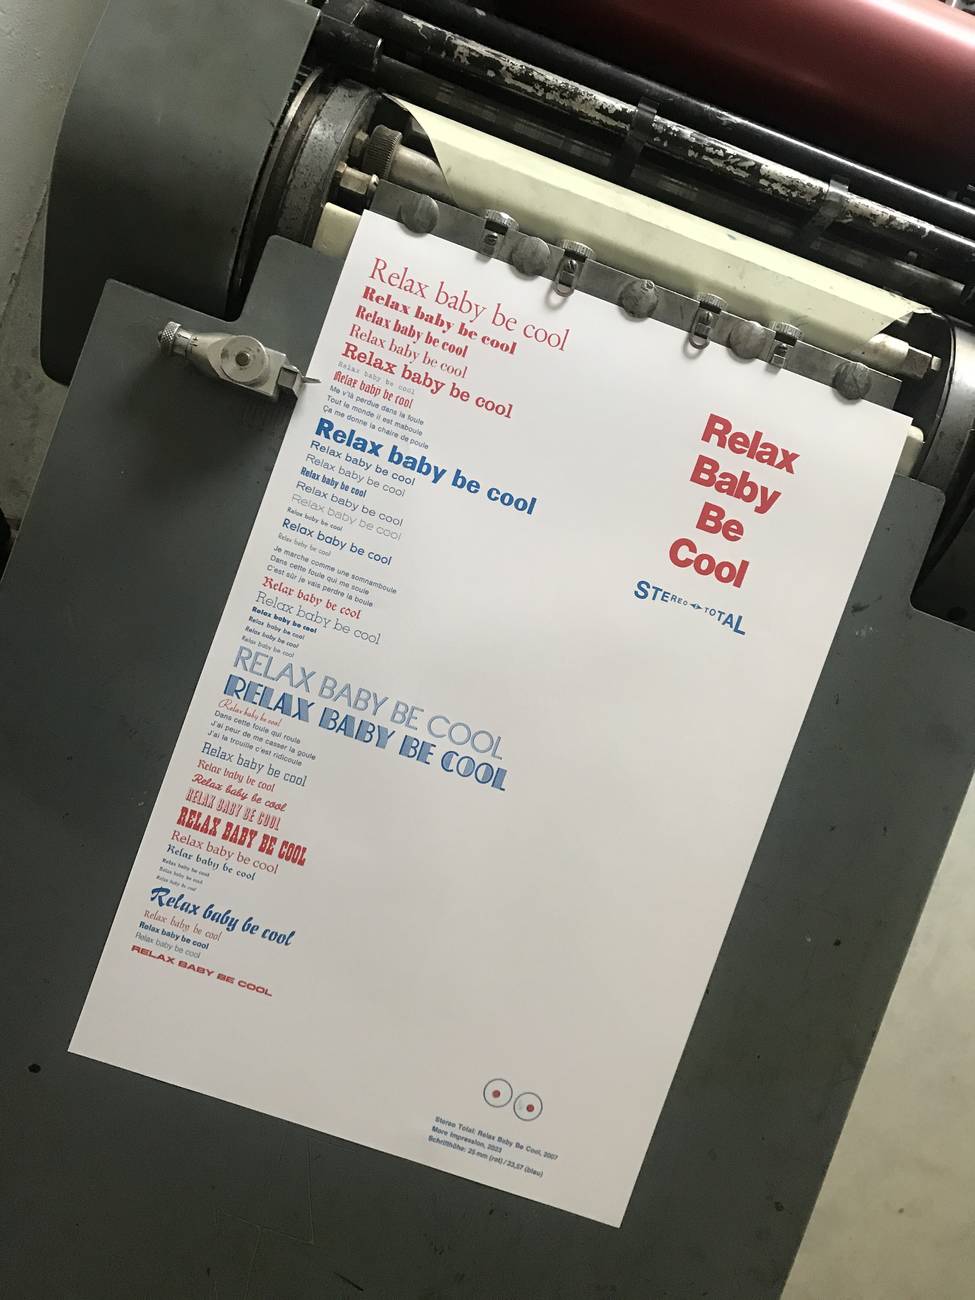 Relax baby be cool
Relax baby be cool
Relax baby be cool
Relax baby be cool
Relax baby be cool
Relax baby be cool
Relax baby be cool
Me v'là perdue dans la foule
Tout le monde il est maboule
Ça me donne la chaire de poule
Relax baby be cool
Relax baby be cool
Relax baby be cool
Relax baby be cool
Relax baby be cool
Relax baby be cool
Relax baby be cool
Relax baby be cool
Relax baby be cool
Je marche comme une somnamboule
Dans cette foule qui me soule
C'est sûr je vais perdre la boule
Relax baby be cool
Relax baby be cool
Relax baby be cool
Relax baby be cool
Relax baby be cool
Relax baby be cool
RELAX BABY BE COOL
RELAX BABY BE COOL
Relax baby be cool
Dans cette foule qui roule
J'ai peur de me casser la goule
J'ai la trouille c'est ridicoule
Relax baby be cool
Relax baby be cool
Relax baby be cool
RELAX BABY BE COOL
RELAX BABY BE COOL
Relax baby be cool
Relax baby be cool
Relax baby be cool
Relax baby be cool
Relax baby be cool
Relax baby be cool
Relax baby be cool
Relax baby be cool
Relax baby be cool
RELAX BABY BE COOL
Relax
Baby
Be
Cool
STEREO TOTAL
Stereo Total: Relax Baby Be Cool, 2007
More Impression, 2023
Schrifthöhe: 25 mm (rot) / 23,57 (blau)